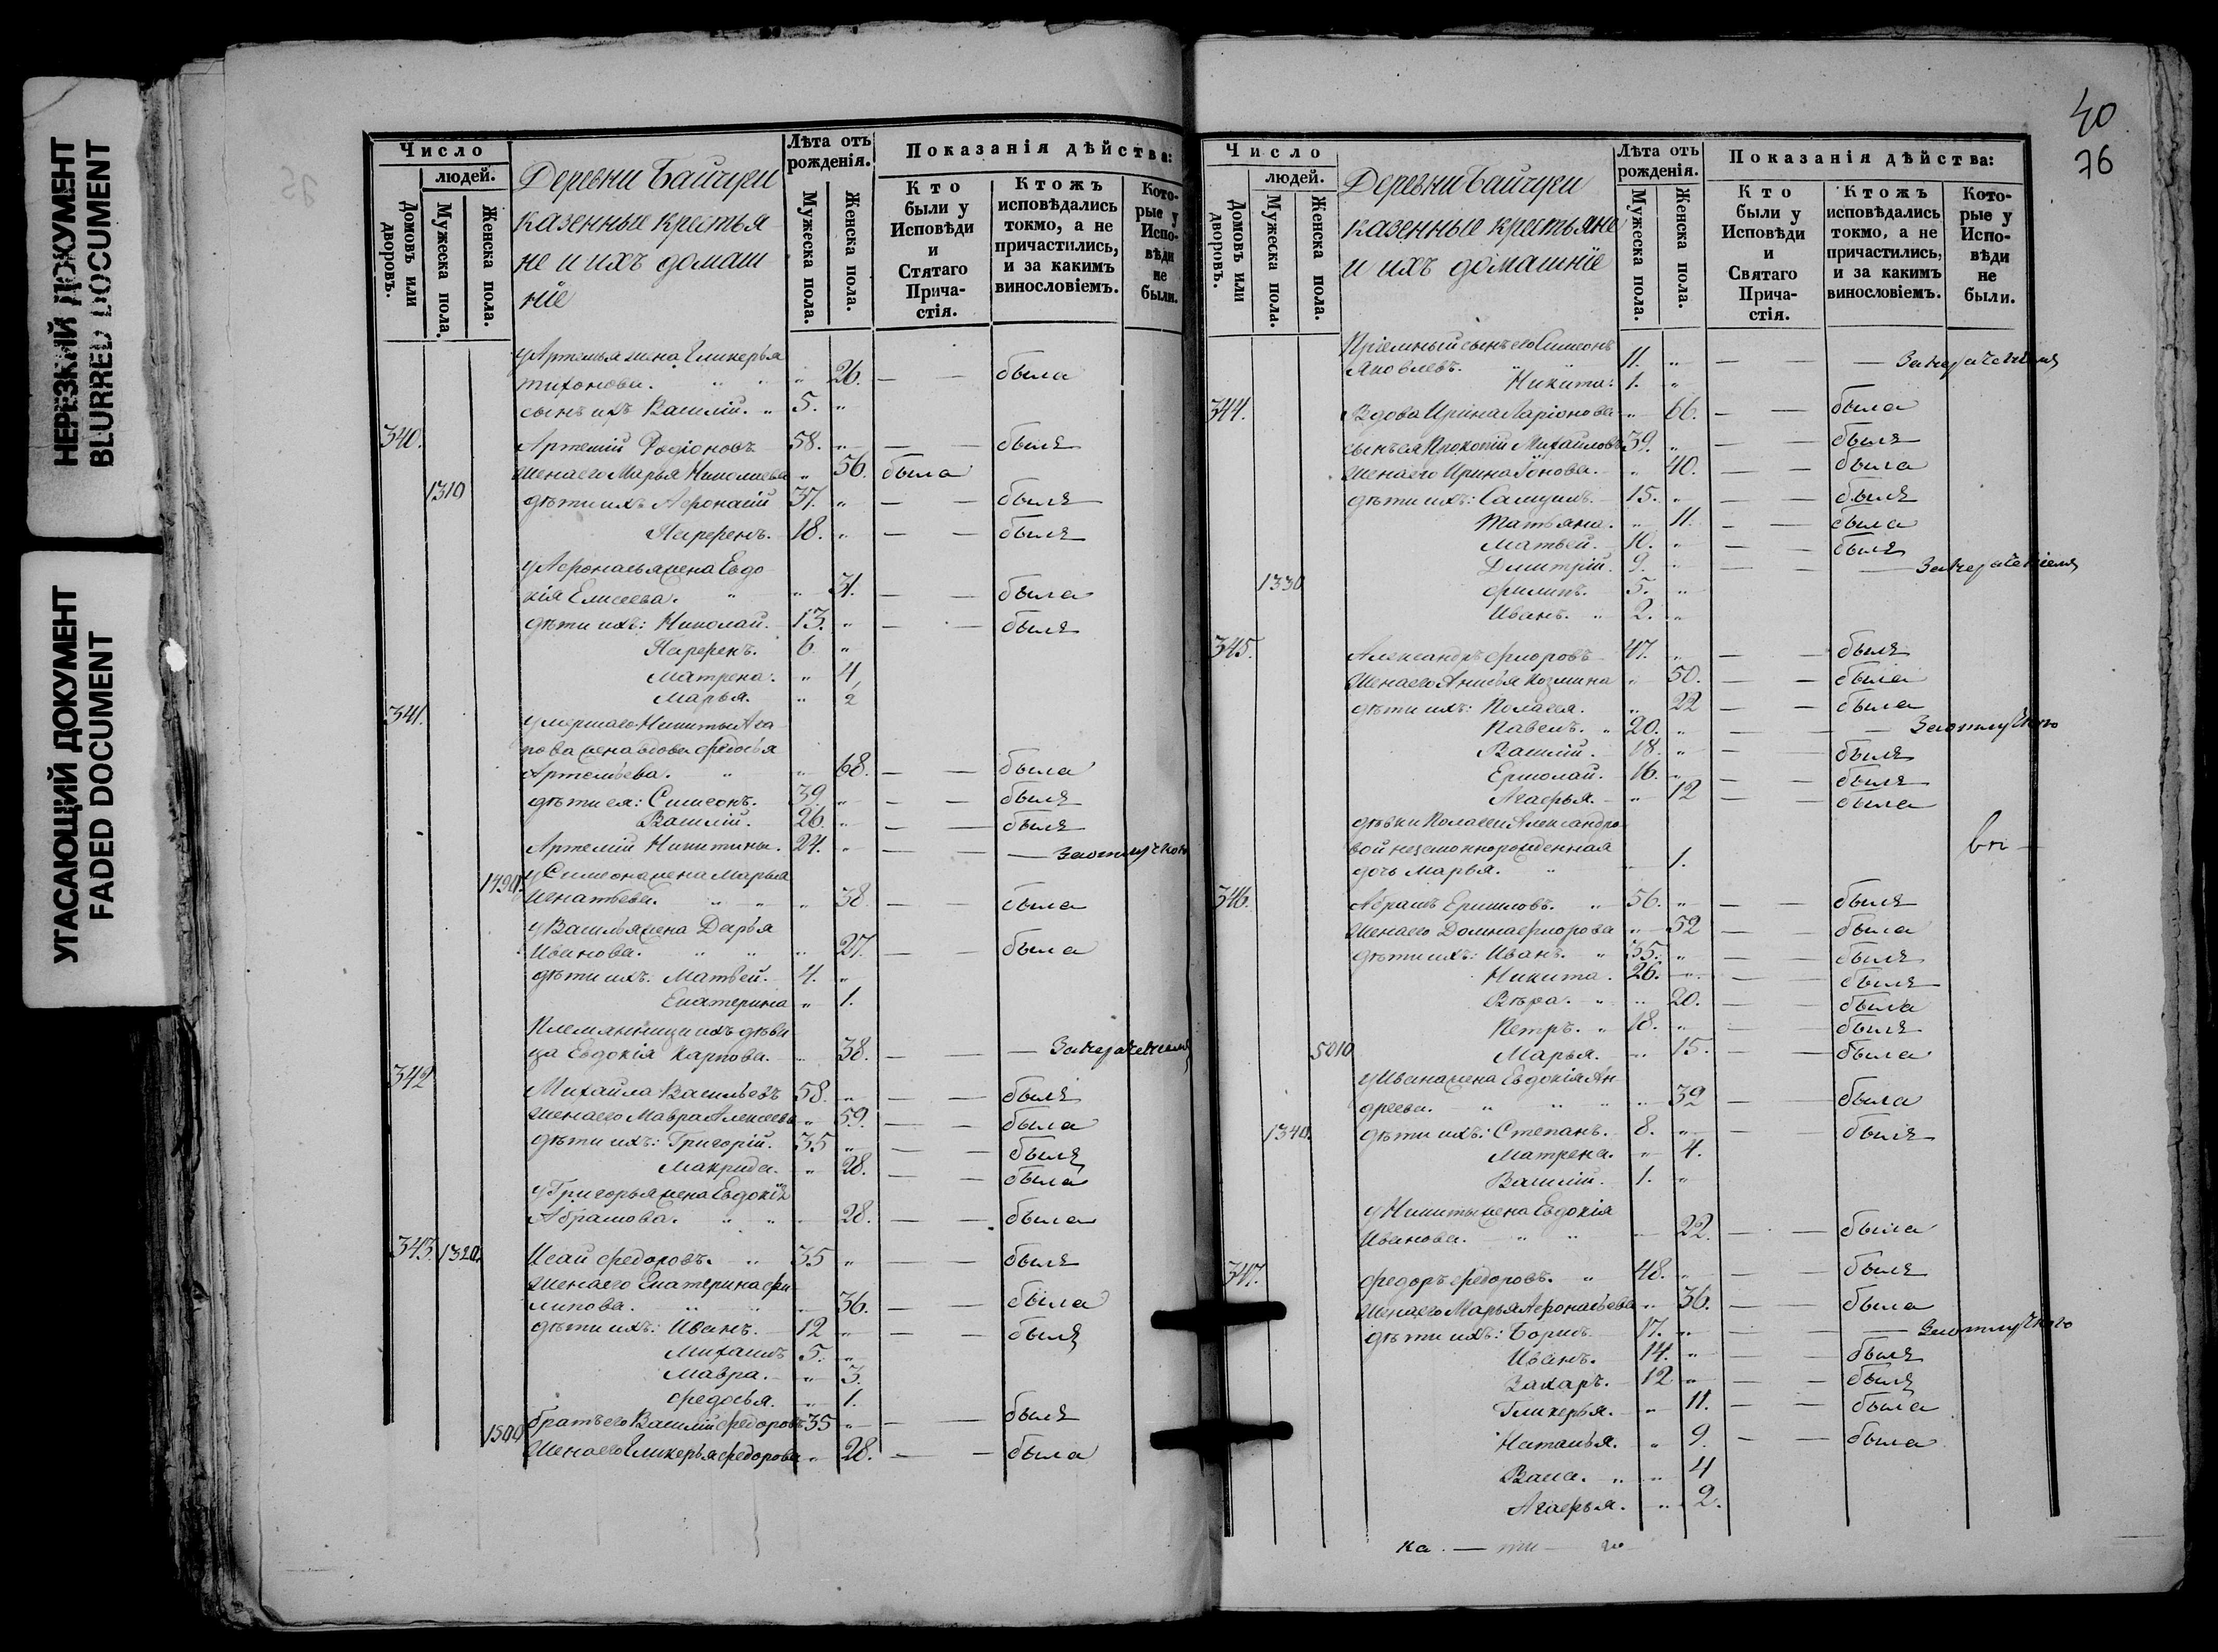 НЕРЕЗКИЙ ДОКУМЕНТ
BLURRED DOCUMENT
УГАСАЮЩИЙ ДОКУМЕНТ
FADED DOCUMENT
Число
людей.
Домовъ или дворовъ.
Мужеска пола.
Женска пола.
Деревни Байчуки
казенные крестья
не и ихъ домаш
ніе
Лѣта отъ рожденія.
Мужеска пола.
Женска пола.
Показанія дѣйства:
Кто были у Исповѣди и Стятаго Прича-стія.
Ктожъ исповѣдались токмо, а не причастились, и за какимъ винословіемъ.
Кото-рые у Испо-вѣди не были.
у Артемья жена Гликерья
Тихонова. " " " 26. — — была
сынъ ихъ Василій. " 5. "
340. Артемій Родіоновъ 58. " — — былъ
жена его Марья Николаева " 56. была
1310 дѣти ихъ Афонасій 37. " — — былъ
Парфенъ. 18. " — — былъ
у Афонасья жена Евдо
кія Елисеева. " " 31. — — была
дѣти ихъ: Николай. 13. " — — былъ
Парфенъ. 6 "
Матрена. " 4
Марья. " 2
341. умершаго Никиты Ага
пова жена вдова Федосья
Артемьева. " " 68. — — была
дѣти ея: Симеонъ. 39. " — — былъ
Василій. 26. " — — былъ
Артемій Никитины. 24. " — — — За отлучкою
1490 у Симеона жена Марья
Игнатьева. " " " 38. — — была
у Василья жена Дарья
Иванова. " " " 27. — — была
дѣти ихъ: Матвей. 4. "
Екатерина " 1.
Племянница ихъ дѣви
ца Евдокія Карпова. " 38. — — — За нераченіемъ
342 Михайла Васильевъ 58. " — — былъ
жена его Мавра Алексеева " 59. — — была
дѣти ихъ: Григорій. 35 " — — былъ
Макрида. " 28. — — была
у Григорья жена Евдокія
Абрамова. " " — 28. — — была
343. 1320. Исай Федоровъ. " 35 " — — былъ
жена его Екатерина Фи
липова. " " — 36. — — была
дѣти ихъ: Иванъ. 12 " — — былъ
Михаилъ 5. "
Мавра. " 3.
Федосья. " 1.
братъ его Василій Федоровъ 35 " — — былъ
1500 жена его Гликерья Федорова " 28. — — была
40
76
Число
людей.
Домовъ или дворовъ.
Мужеска пола.
Женска пола.
Деревни Байчуки
казенные крестьяне
и ихъ домашніе
Лѣта отъ рожденія.
Мужеска пола.
Женска пола.
Показанія дѣйства:
Кто были у Исповѣди и Святаго Прича-стія.
Ктожъ исповѣдались токмо, а не причастились, и за какимъ винословіемъ.
Кото-рые у Испо-вѣди не были.
Пріемный сынъ его Симеонъ
Яковлевъ. " " 11. " — — — За нераченіемъ
Никита. 1. "
344. Вдова Ирина Ларіонова " 66. — — была
сынъ ея Прокопій Михайловъ 39. " — — былъ
жена его Ирина Іонова. " 40. — — была
дѣти ихъ: Самуилъ. 15. " — — былъ
Татьяна. " 11. — — была
Матвей. 10. " — — былъ
Дмитрій. 9. " — — — За нераченіемъ
1330 Филипъ. 5. "
Иванъ. " 2. "
345. Александръ Флоровъ 47. " — — былъ
жена его Анисья Козмина " 50. — — была
дѣти ихъ: Пелагея. " 22 — — была
Павелъ. " 20. " — — — За отлучкою
Василій. 18. " — былъ
Ермолай. 16. " — — былъ
Агафья. " 12 — — была
дѣвки Пелагеи Александро
вой незаконнорожденная
дочь Марья. " — 1.
346. Абрамъ Ермиловъ. " 56. " — — былъ
жена его Домна Флорова " 52 — — была
дѣти ихъ: Иванъ. " 35. " — — былъ
Никита. 26. " — — былъ
Вѣра. " " 20. — — была
Петръ. " 18. " — — былъ
5010 Марья. " 15. — — была
у Ивана жена Евдокія Ан
дреева. " " " " 39 — — была
1340. дѣти ихъ: Степанъ. 8. " — — былъ
Матрена. " 4.
Василій. 1. "
у Никиты жена Евдокія
Иванова. " " — 22. — — была
347. Федоръ Федоровъ. " 48. " — — былъ
жена его Марья Афонасьева " 36. — — была
дѣти ихъ: Борисъ. 17. " — — — За отлучкою
Иванъ. 14. " — — былъ
Захаръ. 12 " — — былъ
Гликерья. " 11. — — была
Наталья. " 9. — — была
Васса. " " 4
Агафья. " 2.